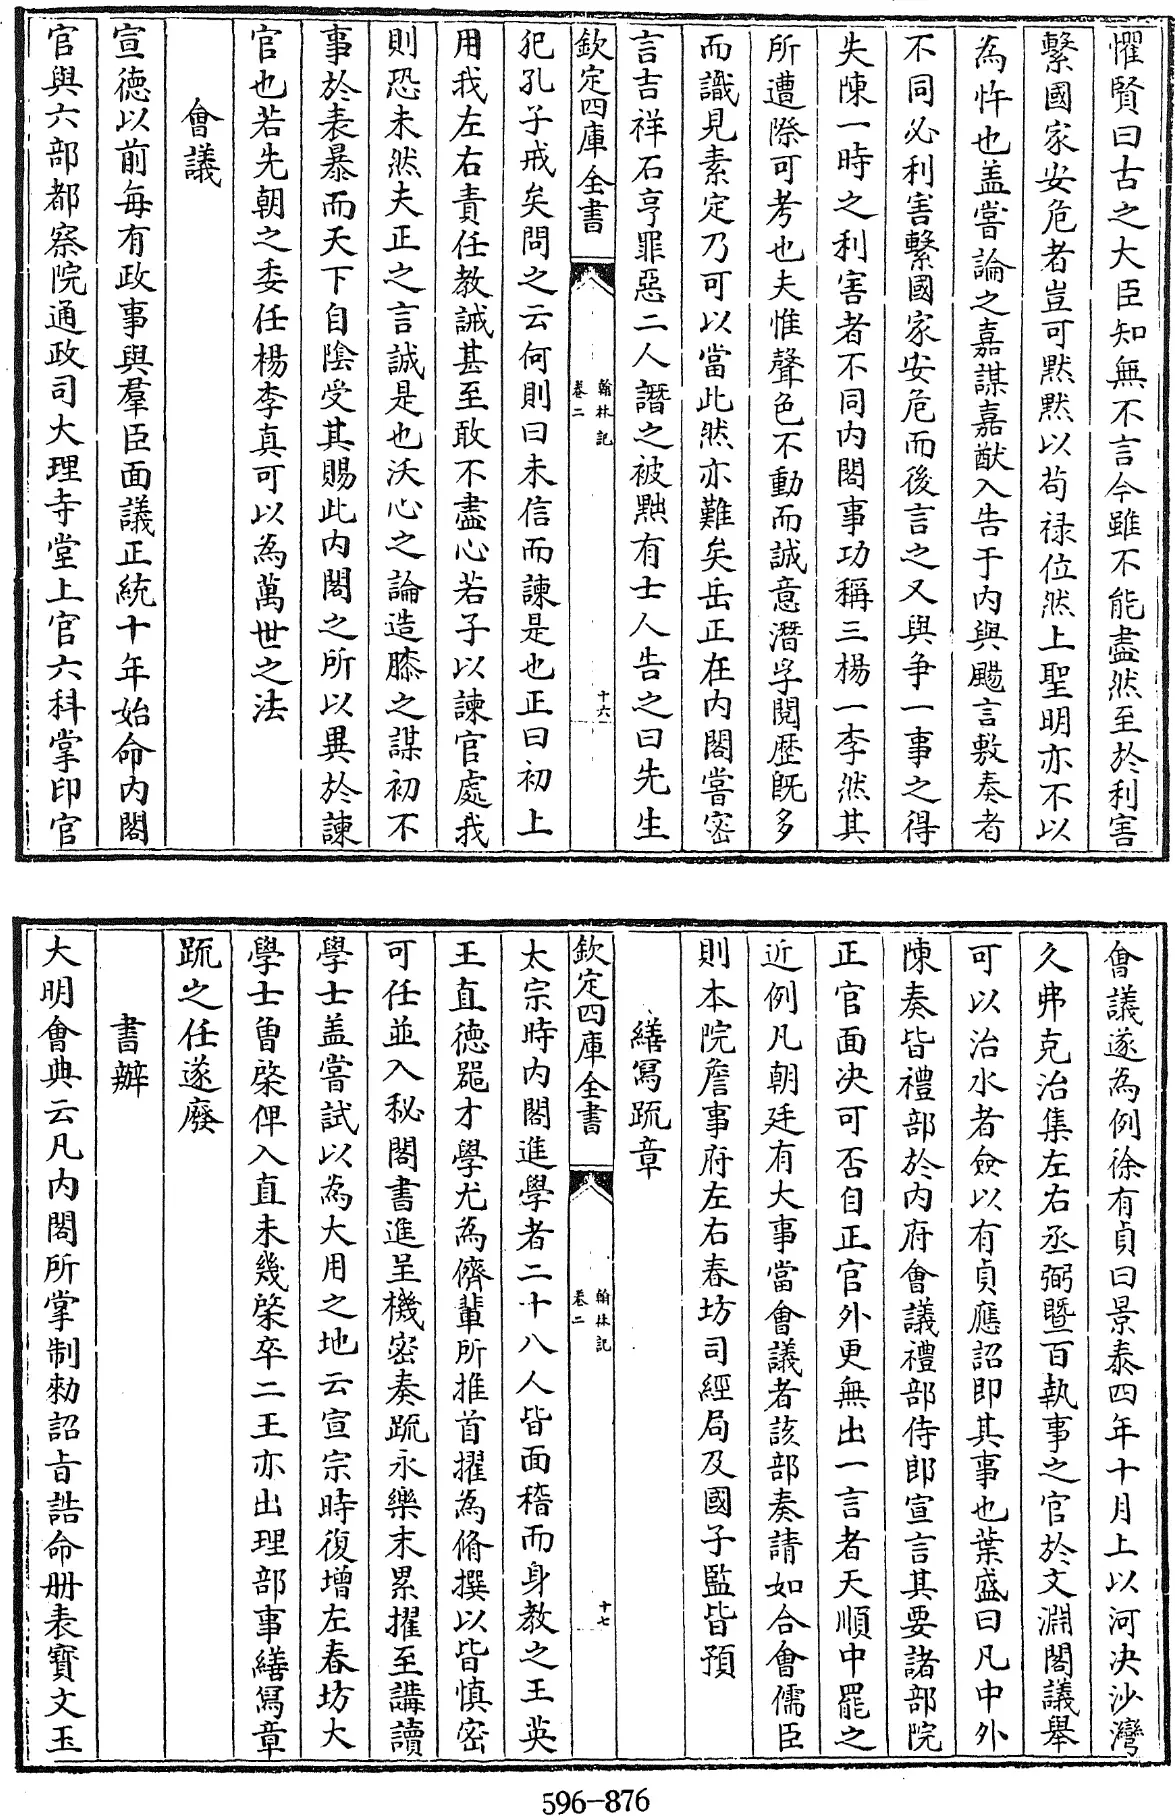 懼賢曰古之大臣知無不言今雖不能盡然至於利害
繫國家安危者豈可黙黙以苟禄位然上聖明亦不以
為忤也盖嘗論之嘉謀嘉猷入告于内與颺言敷奏者
不同必利害繫國家安危而後言之又與争一事之得
失陳一時之利害者不同内閣事功稱三楊一李然其
所遭際可考也夫惟聲色不動而誠意潛孚閲歴既多
而識見素定乃可以當此然亦難矣岳正在内閣嘗密
言吉祥石亨罪惡二人譖之被黜有士人告之曰先生
欽定四庫全書
翰林記
卷二
十六
犯孔子戒矣問之云何則曰未信而諫是也正曰初上
用我左右責任教誡甚至敢不盡心若子以諫官處我
則恐未然夫正之言誠是也沃心之論造膝之謀初不
事於表暴而天下自陰受其賜此内閣之所以異於諫
官也若先朝之委任楊李真可以為萬世之法
會議
宣德以前每有政事與羣臣面議正統十年始命内閣
官與六部都察院通政司大理寺堂上官六科掌印官
會議遂為例徐有貞曰景泰四年十月上以河决沙灣
久弗克治集左右丞弼暨百執事之官於文淵閣議舉
可以治水者僉以有貞應詔即其事也葉盛曰凡中外
陳奏皆禮部於内府會議禮部侍郎宣言其要諸部院
正官面决可否自正官外更無出一言者天順中罷之
近例凡朝廷有大事當會議者該部奏請如合會儒臣
則本院詹事府左右春坊司經局及國子監皆預
繕寫疏章
欽定四庫全書
翰林記
卷二
十七
太宗時内閣進學者二十八人皆面稽而身教之王英
王直德器才學尤為儕輩所推首擢為脩撰以皆慎密
可任並入秘閣書進呈機密奏疏永樂末累擢至講讀
學士盖嘗試以為大用之地云宣宗時復增左春坊大
學士曾棨俾入直未幾棨卒二王亦出理部事繕寫章
疏之任遂廢
書辦
大明會典云凡内閣所掌制勅詔旨誥命冊表寳文玉
596-876